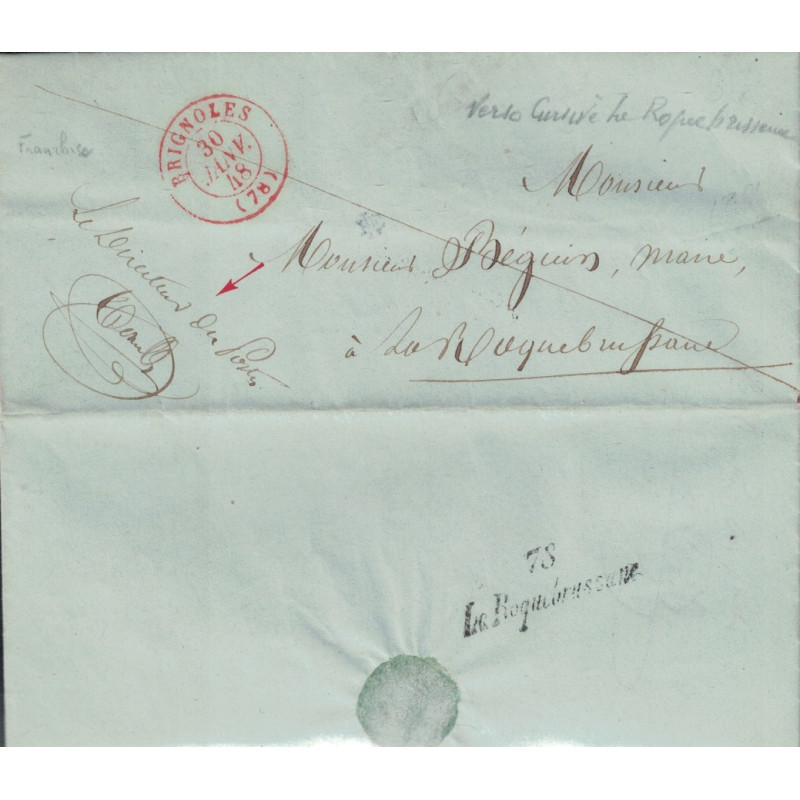 BRIGNOLES
30
JANV.
48
(78)
Verso Cursive La Roquebrussanne
Franchise
Monsieur
Monsieur Béguin, maire,
à La Roquebrussane
Le Directeur des Postes
78
La Roquebrussane